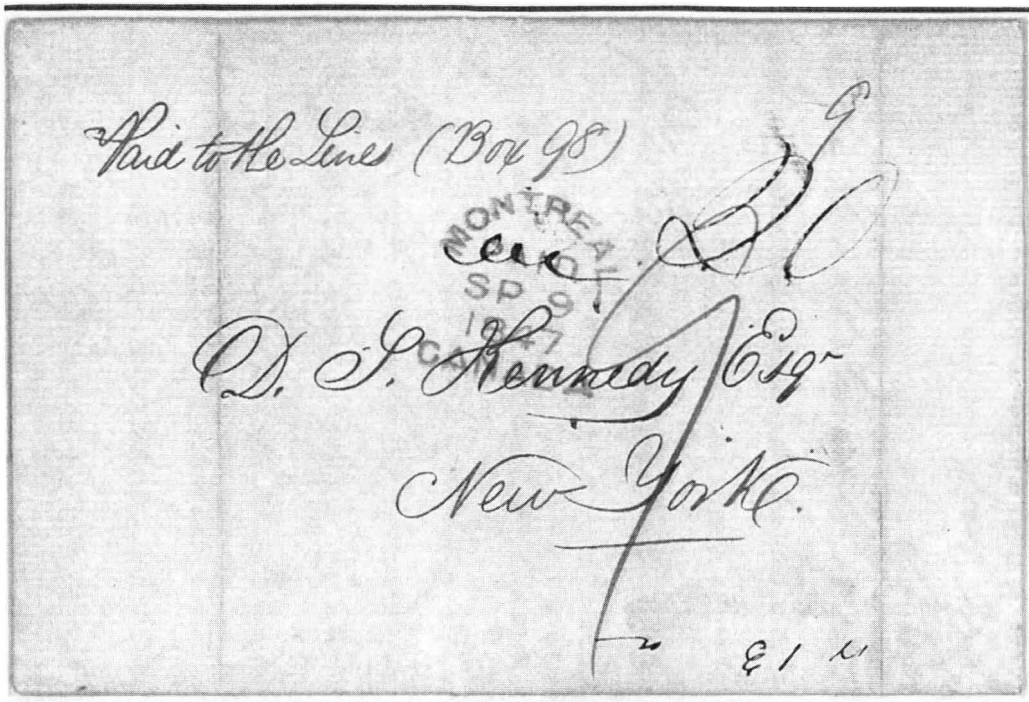 Paid to the Lines (Box 98)
MONTREAL
PAID
SP 9
1847
CANADA
D. S. Kennedy Esqr
New York.